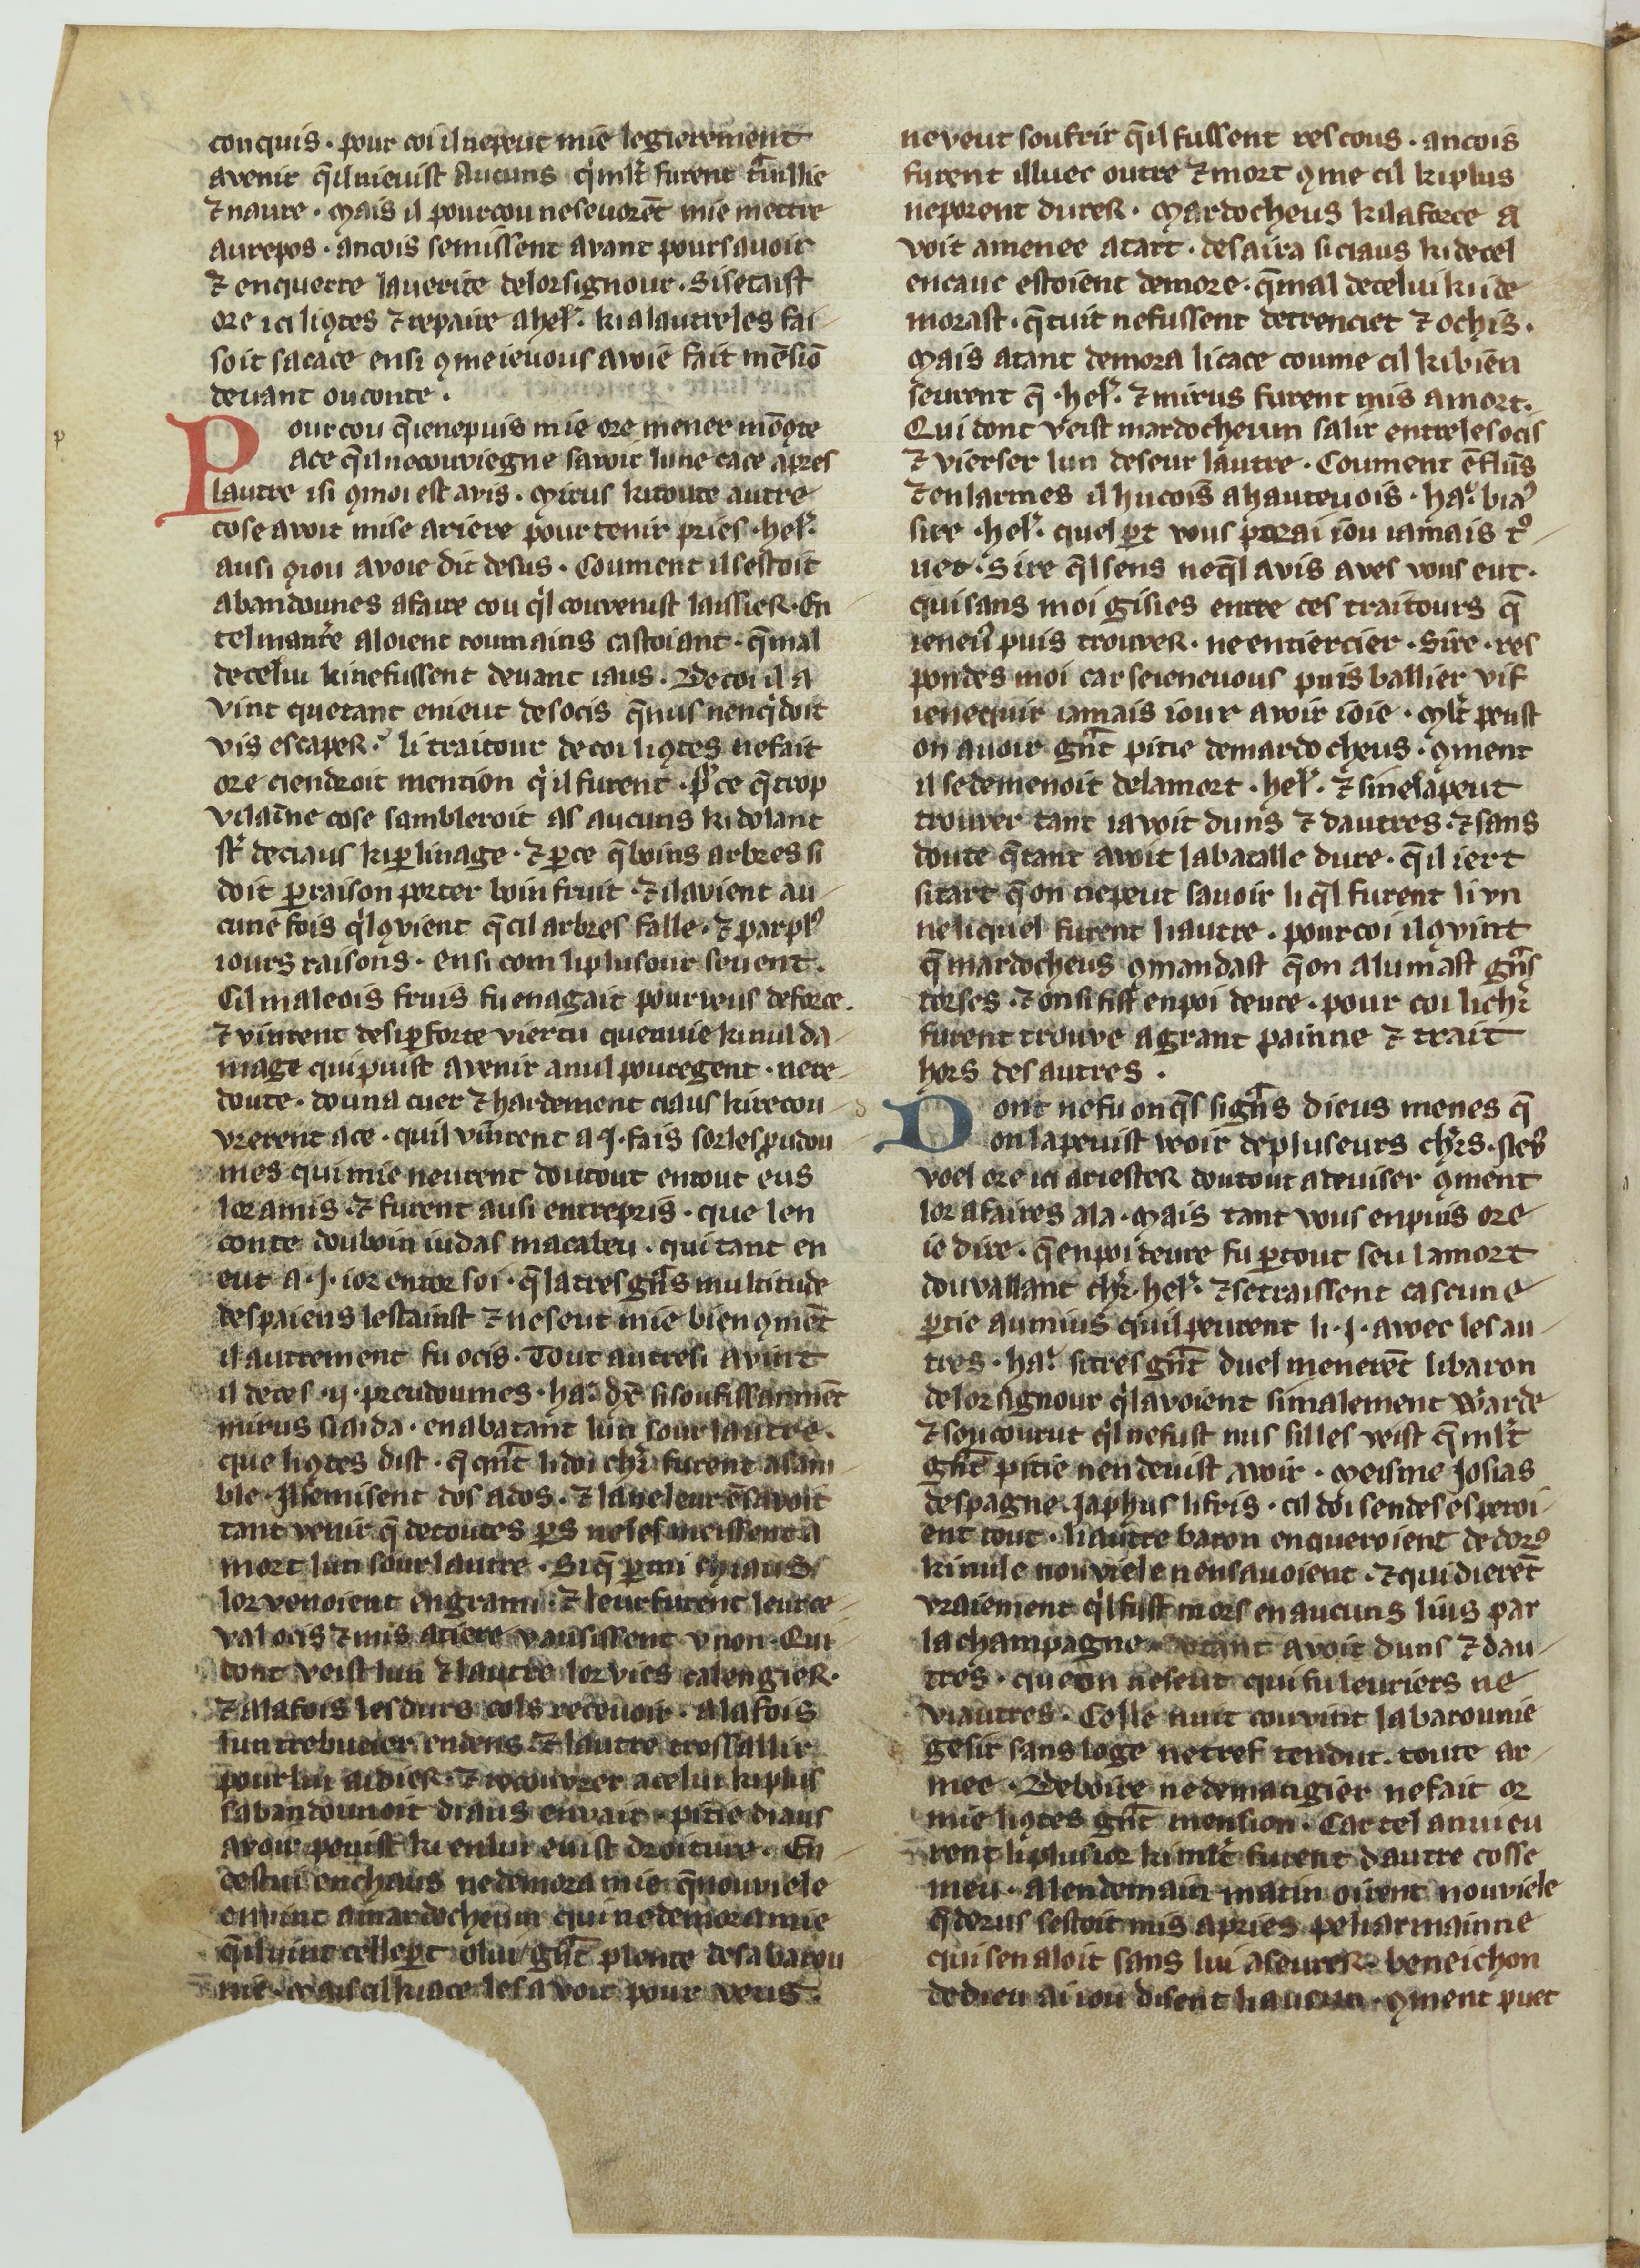 conquis · pour coi il nepeut mie legierement
avenir q̄ il nieuist Aucuns q̓ ml̓t furent t̃uillie
⁊ naure · Mais il pourcou neseuorēt mie mettre
aurepos · ancois semissent avant pour sauoir
⁊ enquerre laverite delor signour · Si se taist
ore ici li ꝯtes ⁊ repaire a hel̓ · ki alautre les fai
soit sa cace ensi ꝯme ie vous avoie fait mēsiō
devant ou conte ·
Pour cou q̄ ie nepuis mie ore mener mō ꝯte
ace q̄ il ne couviegne savoir lune cace apres
lautre isi ꝯ moi est avis · Mirus ki toute autre
cose avoit mise ariere pour tenir pries · hel̓ ·
ausi ꝯ iou avoie dit desus · Coument il sestoit
abandounes afaire cou q̓l couvenist laissier · En
tel man̓re aloient toumains castoiant · q̄ mal
decelui ki nefussent devant iaus · De coi il a
vint que tant en ieut desocis q̄ nus nen q̓doit
vis escaper · li traitour de coi li ꝯtes ne fait
ore ciendroit mention q̓ il furent · p̓ ce q̄ trop
vilaine cose sambleroit as aucuns ki dolant
st̓ de ciaus ki ꝑ linage · ⁊ ꝑ ce q̄ boins arbres si
doit ꝑ raison porter boin fruit · ⁊ il avient au
cune fois q̓l ꝯvient q̄ cil arbres falle · ⁊ par pl̓
iours raisons · ensi com li plusour seuent ·
Cil maleois fruis fu en agait pour vous de force ·
⁊ vinrent desi ꝑ forte viertu que nuie ki nul da
mage qui puist avenir a nul pouregent · nere
doute · douna cuer ⁊ hardement ciaus ki recou
vrerent ace · quil vinrent a ·J· fais sor les ꝓudou
mes qui mie neurent doutout entout eus
lor amis · ⁊ furent ausi entrepris · que len
conte douboin iudas macabeu · qui tant en
eut a ·J· ior entor soi · q̄ la tres gñs multitude
des paiens lestainst ⁊ ne seut mie bien ꝯmēt
il autrement fu ocis · Tout autresi avint
il de ces ·ij· preudoumes · ha · dx̄ si soufissanmēt
mirus si aida · en abatant lun sour lautre ·
que li ꝯtes dist · q̄ qñt li doi chr̓ furent asam
ble · Il se misent dos ados · ⁊ la ne leur ēsavoit
tant venir q̄ de toutes ꝑs neles meissent a
mort lun sour lautre · Si q̄ ꝑmi chiaus
lor venoient engrami · ⁊ leur furent leur ce
val ocis ⁊ mis atiere vausissent v non · Qui
dont veist lun ⁊ lautre lor vies calengier ·
⁊ alafois les durs cols recevoir · alafois
lun trebucier endens · ⁊ lautre tressallir
pour lui aidier · ⁊ recouvrer acelui ki plus
sabandounoit diaus envair · pitie diaus
avoir peuist ki en lui euist droiture · En
cestui enchaus nedemora mie q̄ nouviele
en vint amardocheum qui ne demora mie
q̄ il vint celle ꝑt o lui gñt plente desabarou
nie · Mais cil ki ace les avoit pour veus ·
ne veut soufrir q̄ il fussent rescous · ancois
furent illuec outre ⁊ mort ꝯme cil ki plus
neporent durer · Mardocheus ki la force a
voit amenee atart · desaira si ciaus ki de cel
encauc estoient demore · q̄ mal decelui ki i de
morast · q̄ tuit nefussent detrenciet ⁊ ochis ·
Mais atant demora li cace coume cil ki bien
seurent q̄ · hel̓ · ⁊ mirus furent mis amort ·
Qui dont veist mardocheum salir entre les ocis
⁊ vierser lun deseur lautre · Coument ē flūs
⁊ en larmes il hucois a haute vois · ha · biā
sire · hel̓ · quel ꝑt vous porai iou iamais t̓
uer · Sire q̄l sens ne q̄l avis aves vous eut ·
qui sans moi gisies entre ces traitours q̄
ie ne v̓ puis trouver · ne entiercier · Sire · res
pondes moi car se ie ne vous puis ballier vif
ie ne quir iamais iour avoir ioie · Ml̓t peust
on avoir gñt pitie de mardocheus · ꝯment
il se demenoit delamort · hel̓ · ⁊ si ne la peut
trouver tant i avoit duns ⁊ dautres · ⁊ sans
doute q̄ tant avoit la batalle dure · q̄ il iert
si tart q̄ on ne peut savoir li q̄l furent li vn
ne li quel furent li autre · pour coi il ꝯvint
q̄ mardocheus ꝯmandast q̄ on alumast gñs
torses · ⁊ on si fist en poi deure · pour coi li chr̓
furent trouve a grant painne ⁊ trait
hors des autres ·
Dont ne fu onq̄s sigñs dieus menes q̄
on la peuist veoir de pluseurs chr̓s ·
voel ore ici ariester doutout adeviser ꝯment
lor afaires ala · Mais tant vous en puis ore
ie dire · q̄ en poi deure fu ꝑtout seu lamort
dou vallant chr̓ · hel̓ · ⁊ se traissent cascune
ꝑtie au mius quil peurent li ·J· avec les au
tres · ha · si tres gñt duel menerēt li baron
delor signour q̓l avoient si malement warde
⁊ son courut q̓l ne fust nus silles veist q̄ ml̓t
gñt pitie nen deuist avoir · Meisme Josias
despagne · Japhus li fris · cil doi sen desesperoi
ent tout · li autre baron enqueroient de dorˢ
ki nule nouviele nen savoient · ⁊ quidierēt
vraiement q̓l fust mors en aucuns lius par
la champagne · tant avoit duns ⁊ dau
tres · que on ne seut qui fu leuriers ne
viautres · Celle nuit couvint la barounie
gesir sans loge ne tref tendut · toute ar
mee · De boire ne de mangier ne fait or
mie li ꝯtes gñt mension · Car tel anui eu
rent li plusior ki ml̓t furent dautre cosse
meu · A lendemain matin oirent nouviele
q̄ dorus sestoit mis apries peliarmainne
qui sen aloit sans lui aseurer · beneichon
de dieu ai iou disent li aucun · ꝯment puet